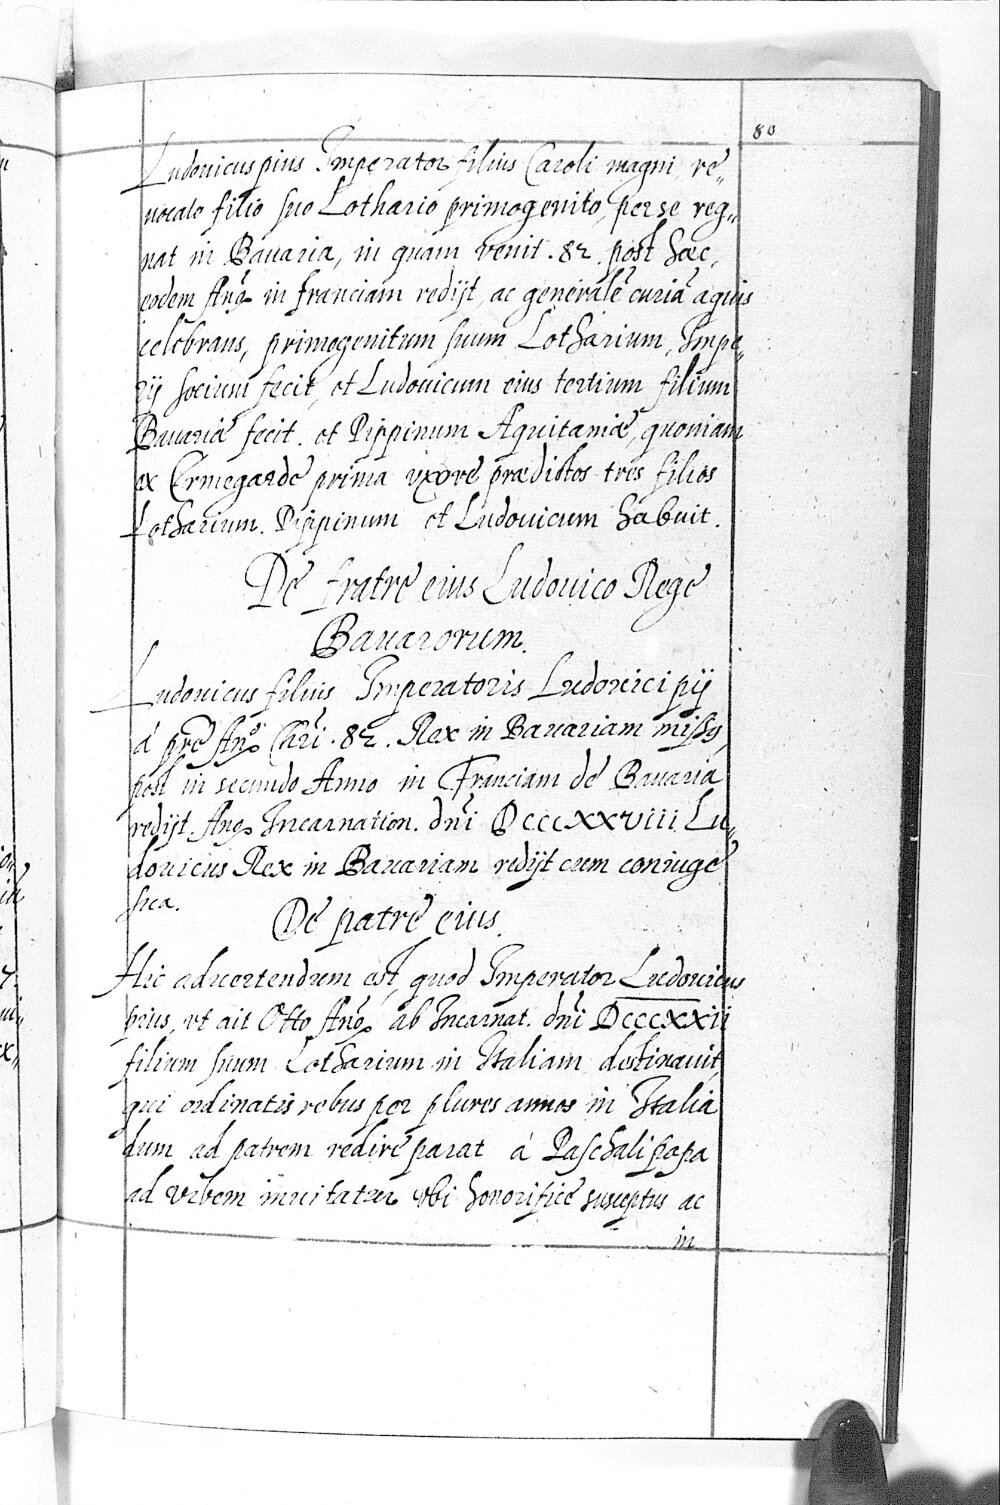 80
Ludouicus pius Imperator filius Caroli magni re„
uocato filio suo Lothario primogenito, per se reg„
nat in Bauaria, in quam venit .82. post hæc,
eodem Anõ in franciam redijt, ac generalẽ curiã aquis
celebrans, primogenitum suum Lotharium, Impe„
rij socium fecit, et Ludouicum eius tertium filium
Bauariæ fecit. et Pippinum Aquitaniæ, quoniam
ex Ermegarde prima vxore prædictos tres filios
Lotharium. Pippinum et Ludouicum habuit.
De fratre eius Ludouico Rege
Bauarorum.
Ludouicus filius Imperatoris Ludouici pij
á pre Anõ Chri .82. Rex in Bauariam missus,
post in secundo Anno in Franciam de Bauaria
redijt. Anõ Incarnation. dni DCCCXXVIII Lu„
douicus Rex in Bauariam redijt cum coniuge
sua.
De patre eius.
Hic aduertendum est, quod Imperator Ludouicus
pius, vt ait Otto Anõ ab Incarnat. dni DCCCXXII
filium suum Lotharium in Italiam destinauit,
qui ordinatis rebus per plures annos in Italia
dum ad patrem redire parat á Paschali papa
ad vrbem inuitatur vbi honorifice susceptus ac
in